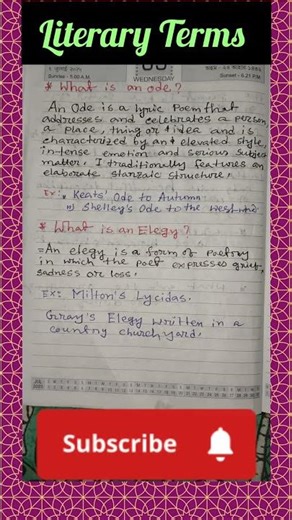 Literary Terms
WEDNESDAY
* What is an ode?
An Ode is a lyric Poem that
addresses and celebrates a person
a place, thing or idea and is
characterized by an elevated style,
intense emotion and serious subject
matter. I traditionally features an
elaborate stanzaic structure.
Ex: Keats' Ode to Autumn
ii) Shelley's Ode to the west
* What is an Elegy?
= An elegy is a form of poetry
in which the poet expresses grief,
sadness or loss.
Ex: Milton's Lycidas.
Gray's Elegy written in a
country churchyard.
Subscribe